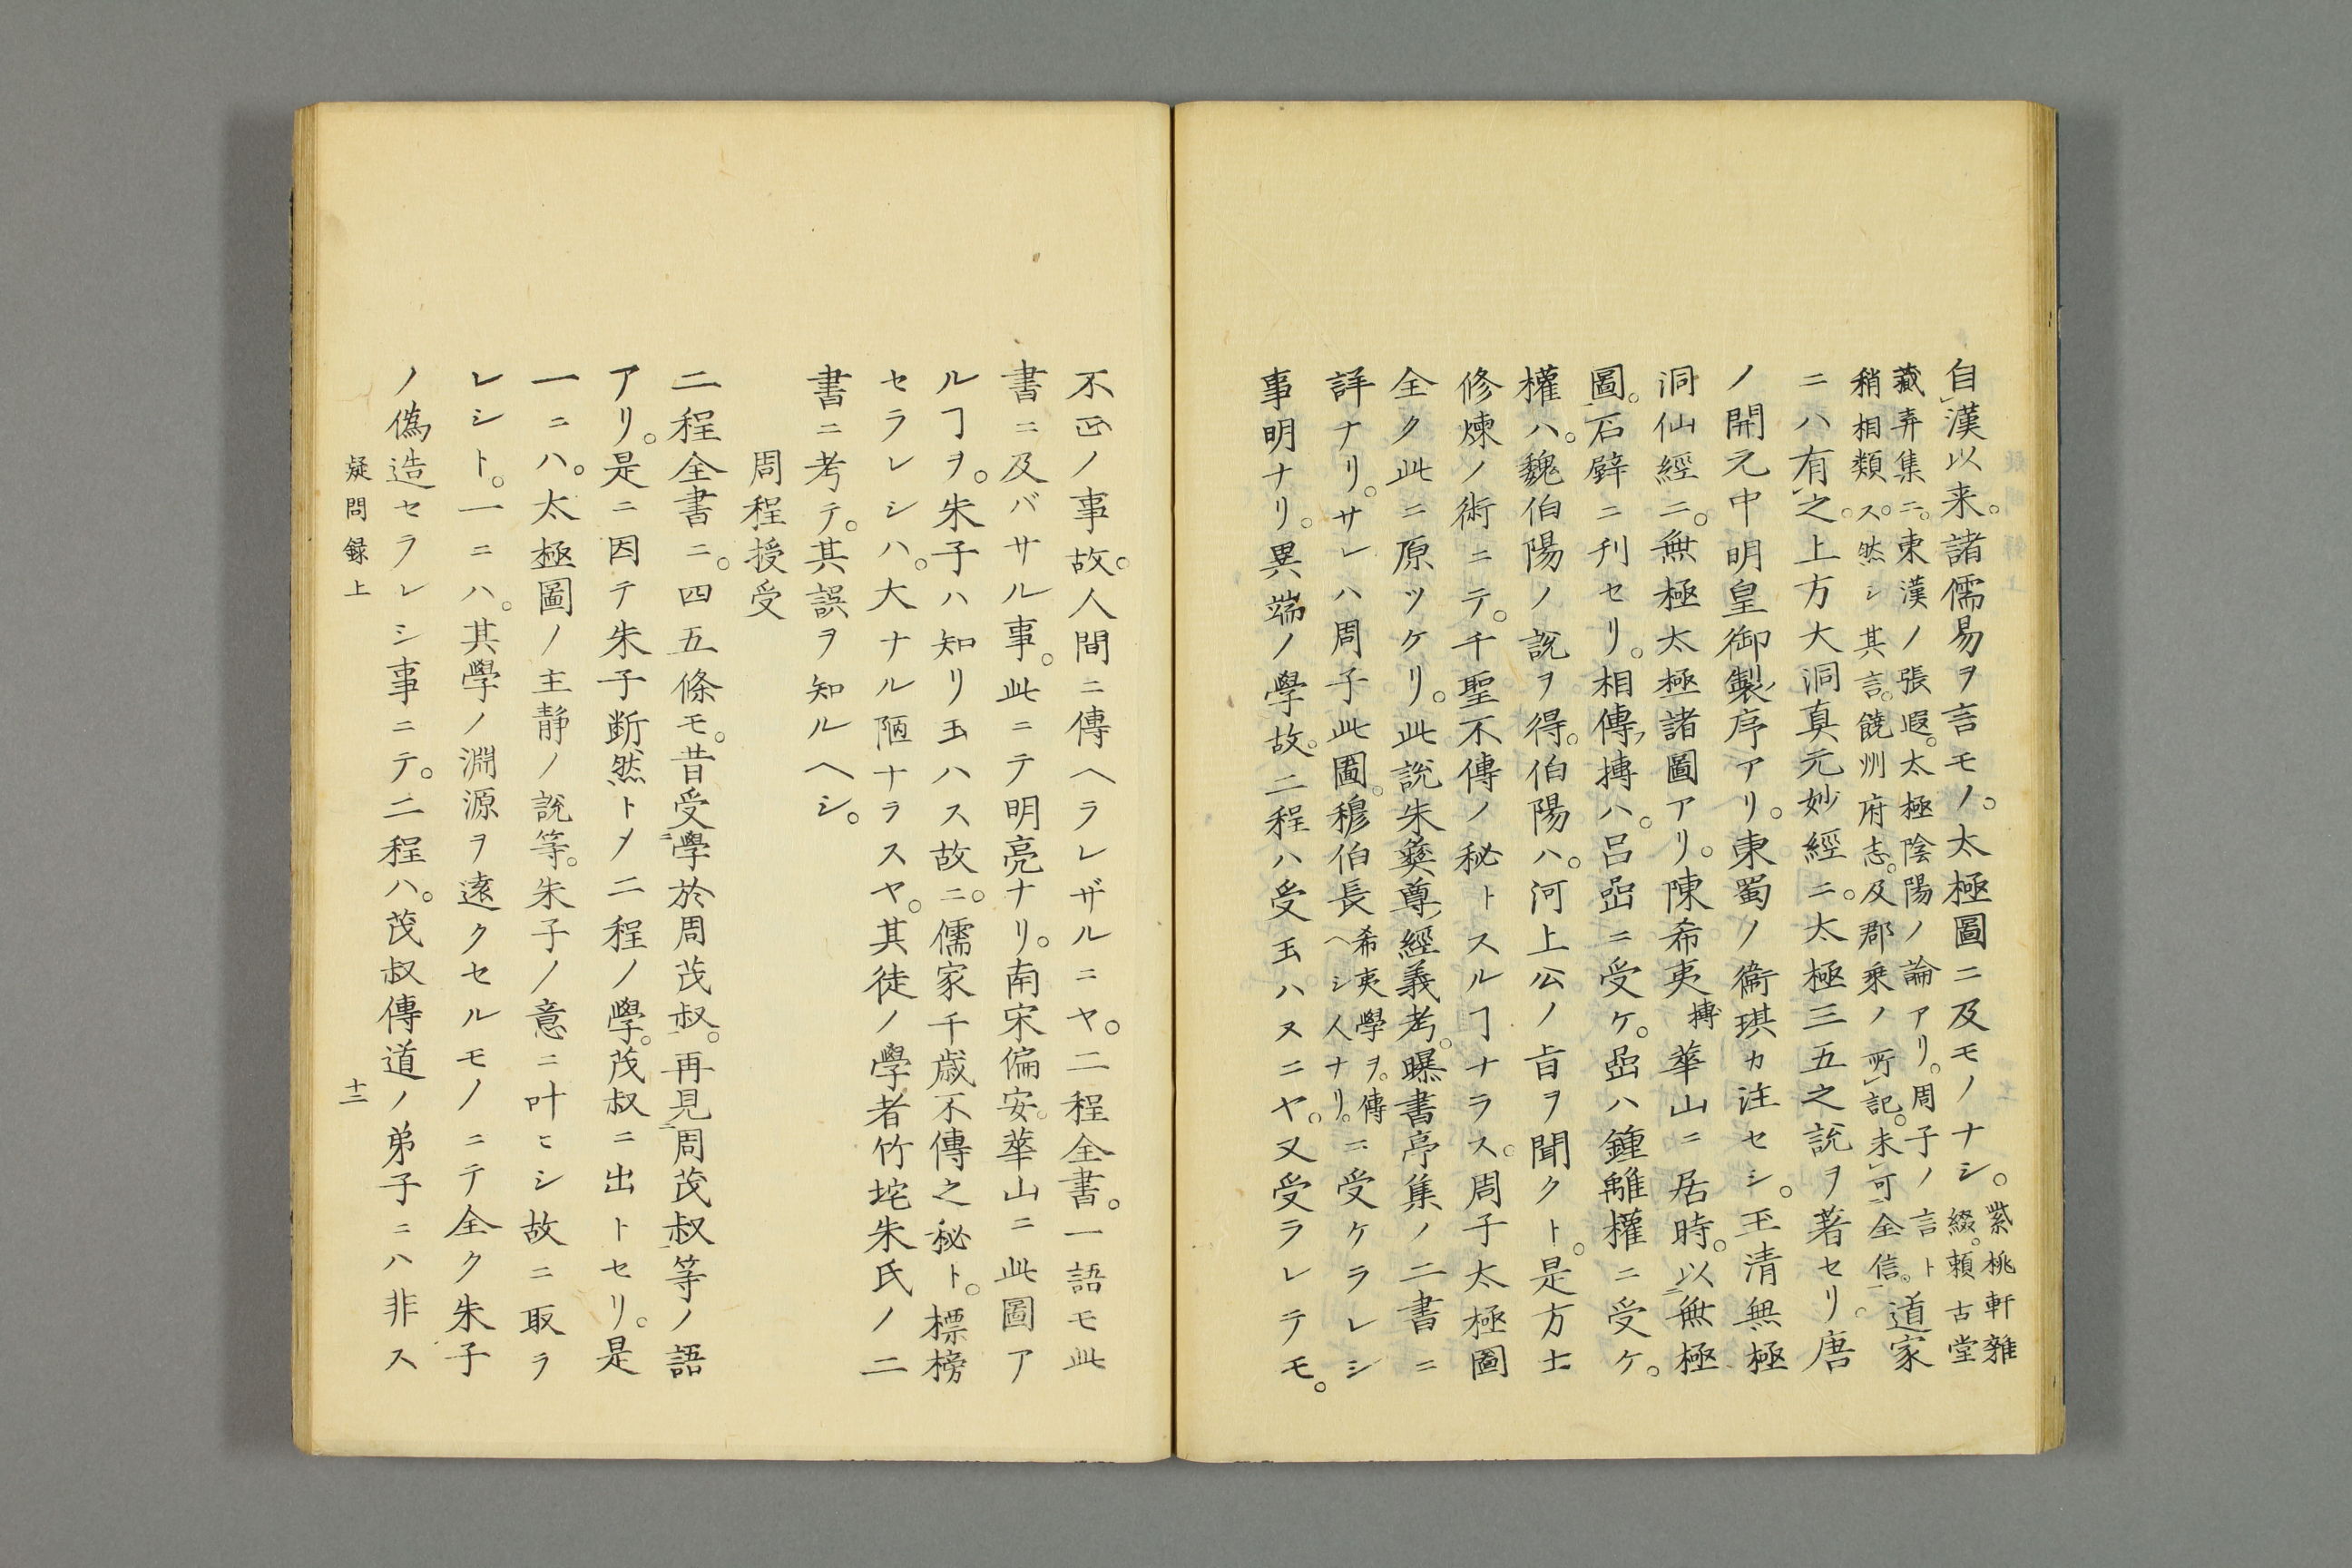 自漢以来。諸儒易ヲ言モノ。太極圖ニ及モノナシ。紫桃軒雜綴。頼古堂
藏弆集ニ。東漢ノ張遐。太極陰陽ノ論アリ。周子ノ言ト
稍相類ス。然シ其言。饒州府志。及郡乗ノ所記。未可全信。道家
ニハ有之。上方大洞真元妙經ニ。太極三五之説ヲ著セリ。唐
ノ開元中明皇御製序アリ。東蜀ノ衞琪カ注セシ。玉清無極
洞仙經ニ。無極太極諸圖アリ。陳希夷摶華山ニ居時。以無極
圖。石壁ニ刋セリ。相傳摶ハ。呂嵒ニ受ケ。嵒ハ鍾離權ニ受ケ。
權ハ。魏伯陽ノ説ヲ得。伯陽ハ。河上公ノ㫖ヲ聞クト。是方士
修煉ノ術ニテ。千聖不傳ノ秘トスルヿナラス。周子太極圖
全ク此ニ原ツケリ。此說朱彜尊經義考。曝書亭集ノ二書ニ
詳ナリ。サレハ周子此圖。穆伯長希夷學ヲ。傳ヘシ人ナリ。ニ受ケラレシ
事明ナリ。異端ノ學故。二程ハ受玉ハヌニヤ。又受ラレテモ。
不正ノ事故。人間ニ傳ヘラレザルニヤ。二程全書。一語モ此
書ニ及バサル事。此ニテ明亮ナリ。南宋偏安。華山ニ此圖ア
ルヿヲ。朱子ハ知リ玉ハス故ニ。儒家千歳不傳之秘ト。標榜
セラレシハ。大ナル陋ナラスヤ。其徒ノ學者竹垞朱氏ノ二
書ニ考テ。其誤ヲ知ルヘシ。
周程授受
二程全書ニ。四五條モ。昔受學於周茂叔。再見周茂叔等ノ語
アリ。是ニ因テ朱子断然トメ二程ノ學。茂叔ニ出トセリ。是
一ニハ。太極圖ノ主静ノ説等。朱子ノ意ニ叶ヒシ故ニ取ラ
レシト。一ニハ。其學ノ淵源ヲ遠クセルモノニテ全ク朱子
ノ偽造セラレシ事ニテ。二程ハ。茂叔傳道ノ弟子ニハ非ス
疑問録上
十二